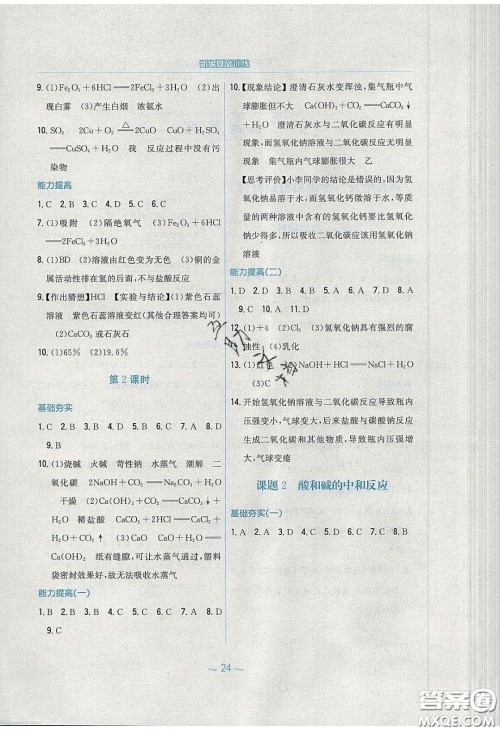 新编基础训练
9. (1)Fe₂O₃+6HCl══2FeCl₃+3H₂O (2)出
现白雾 (3)产生白烟 浓氨水
10. SO₂ 2Cu+O₂ ══△ 2CuO CuO+H₂SO₄
══CuSO₄+H₂O 我 反应过程中没有污
染物
能力提高
1. C 2. B 3. C 4. D 5. C 6. C
7. (1)吸附 (2)隔绝氧气 (3)Fe₂O₃+6HCl
══2FeCl₃+3H₂O
8. (1)BD (2)溶液由红色变为无色 (3)铜的金
属活动性排在氢的后面,不与盐酸反应
9. 【作出猜想】HCl 【实验与结论】(1)紫色石蕊
溶液 紫色石蕊溶液变红(其他合理答案均可)
(2)CaCO₃或石灰石
10. (1)65% (2)19.6%
第2课时
基础夯实
1. C 2. D 3. C 4. B 5. C 6. C 7. A 8. D
9. B
10. (1)烧碱 火碱 苛性钠 水蒸气 潮解 二
氧化碳 Ca(OH)₂+CO₂══CaCO₃↓+H₂O
干燥 (2)CaO+H₂O══Ca(OH)₂
Ca(OH)₂+CO₂══CaCO₃↓+
H₂O 稀盐酸 CaCO₃+2HCl══CaCl₂+
H₂O+CO₂↑ (3)CaO CaO+H₂O
══Ca(OH)₂ 纸有缝隙,可让水蒸气透过,塑料
袋密封效果好,故无法吸收水蒸气
能力提高(一)
1. B 2. B 3. D 4. C 5. C 6. D 7. A 8. D
9. C
10. 【现象结论】澄清石灰水变浑浊,集气瓶中气
球膨胀但不大 Ca(OH)₂+CO₂══CaCO₃
↓+H₂O 澄清石灰水与二氧化碳反应有明显
现象,而氢氧化钠溶液与二氧化碳反应无明显
现象 集气瓶内气球膨胀很大 乙
【思考评价】小李同学的结论是错误的,因为氢
氧化钠易溶于水,而氢氧化钙微溶于水,等
质量的两种溶液中含有的氢氧化钙要比氢氧化
钠少得多,所以吸收二氧化碳应该用氢氧化钠
溶液
能力提高(二)
1. D
12. (1)+4 (2)氢氧化钠具有强烈的腐
蚀性 (4)乳化
13. (1)红色 NaOH+HCl══NaCl+H₂O
(3)C
14. 开始氢氧化钠溶液与二氧化碳反应导致瓶内
压强变小,气球变大,后来盐酸与碳酸钠反应
生成二氧化碳和其他物质,导致瓶内压强变
大,气球变瘪
课题2 酸和碱的中和反应
基础夯实(一)
1. A 2. A 3. D 4. C 5. C 6. C 7. C 8. B
~ 24 ~
答案圈
MXQE.COM